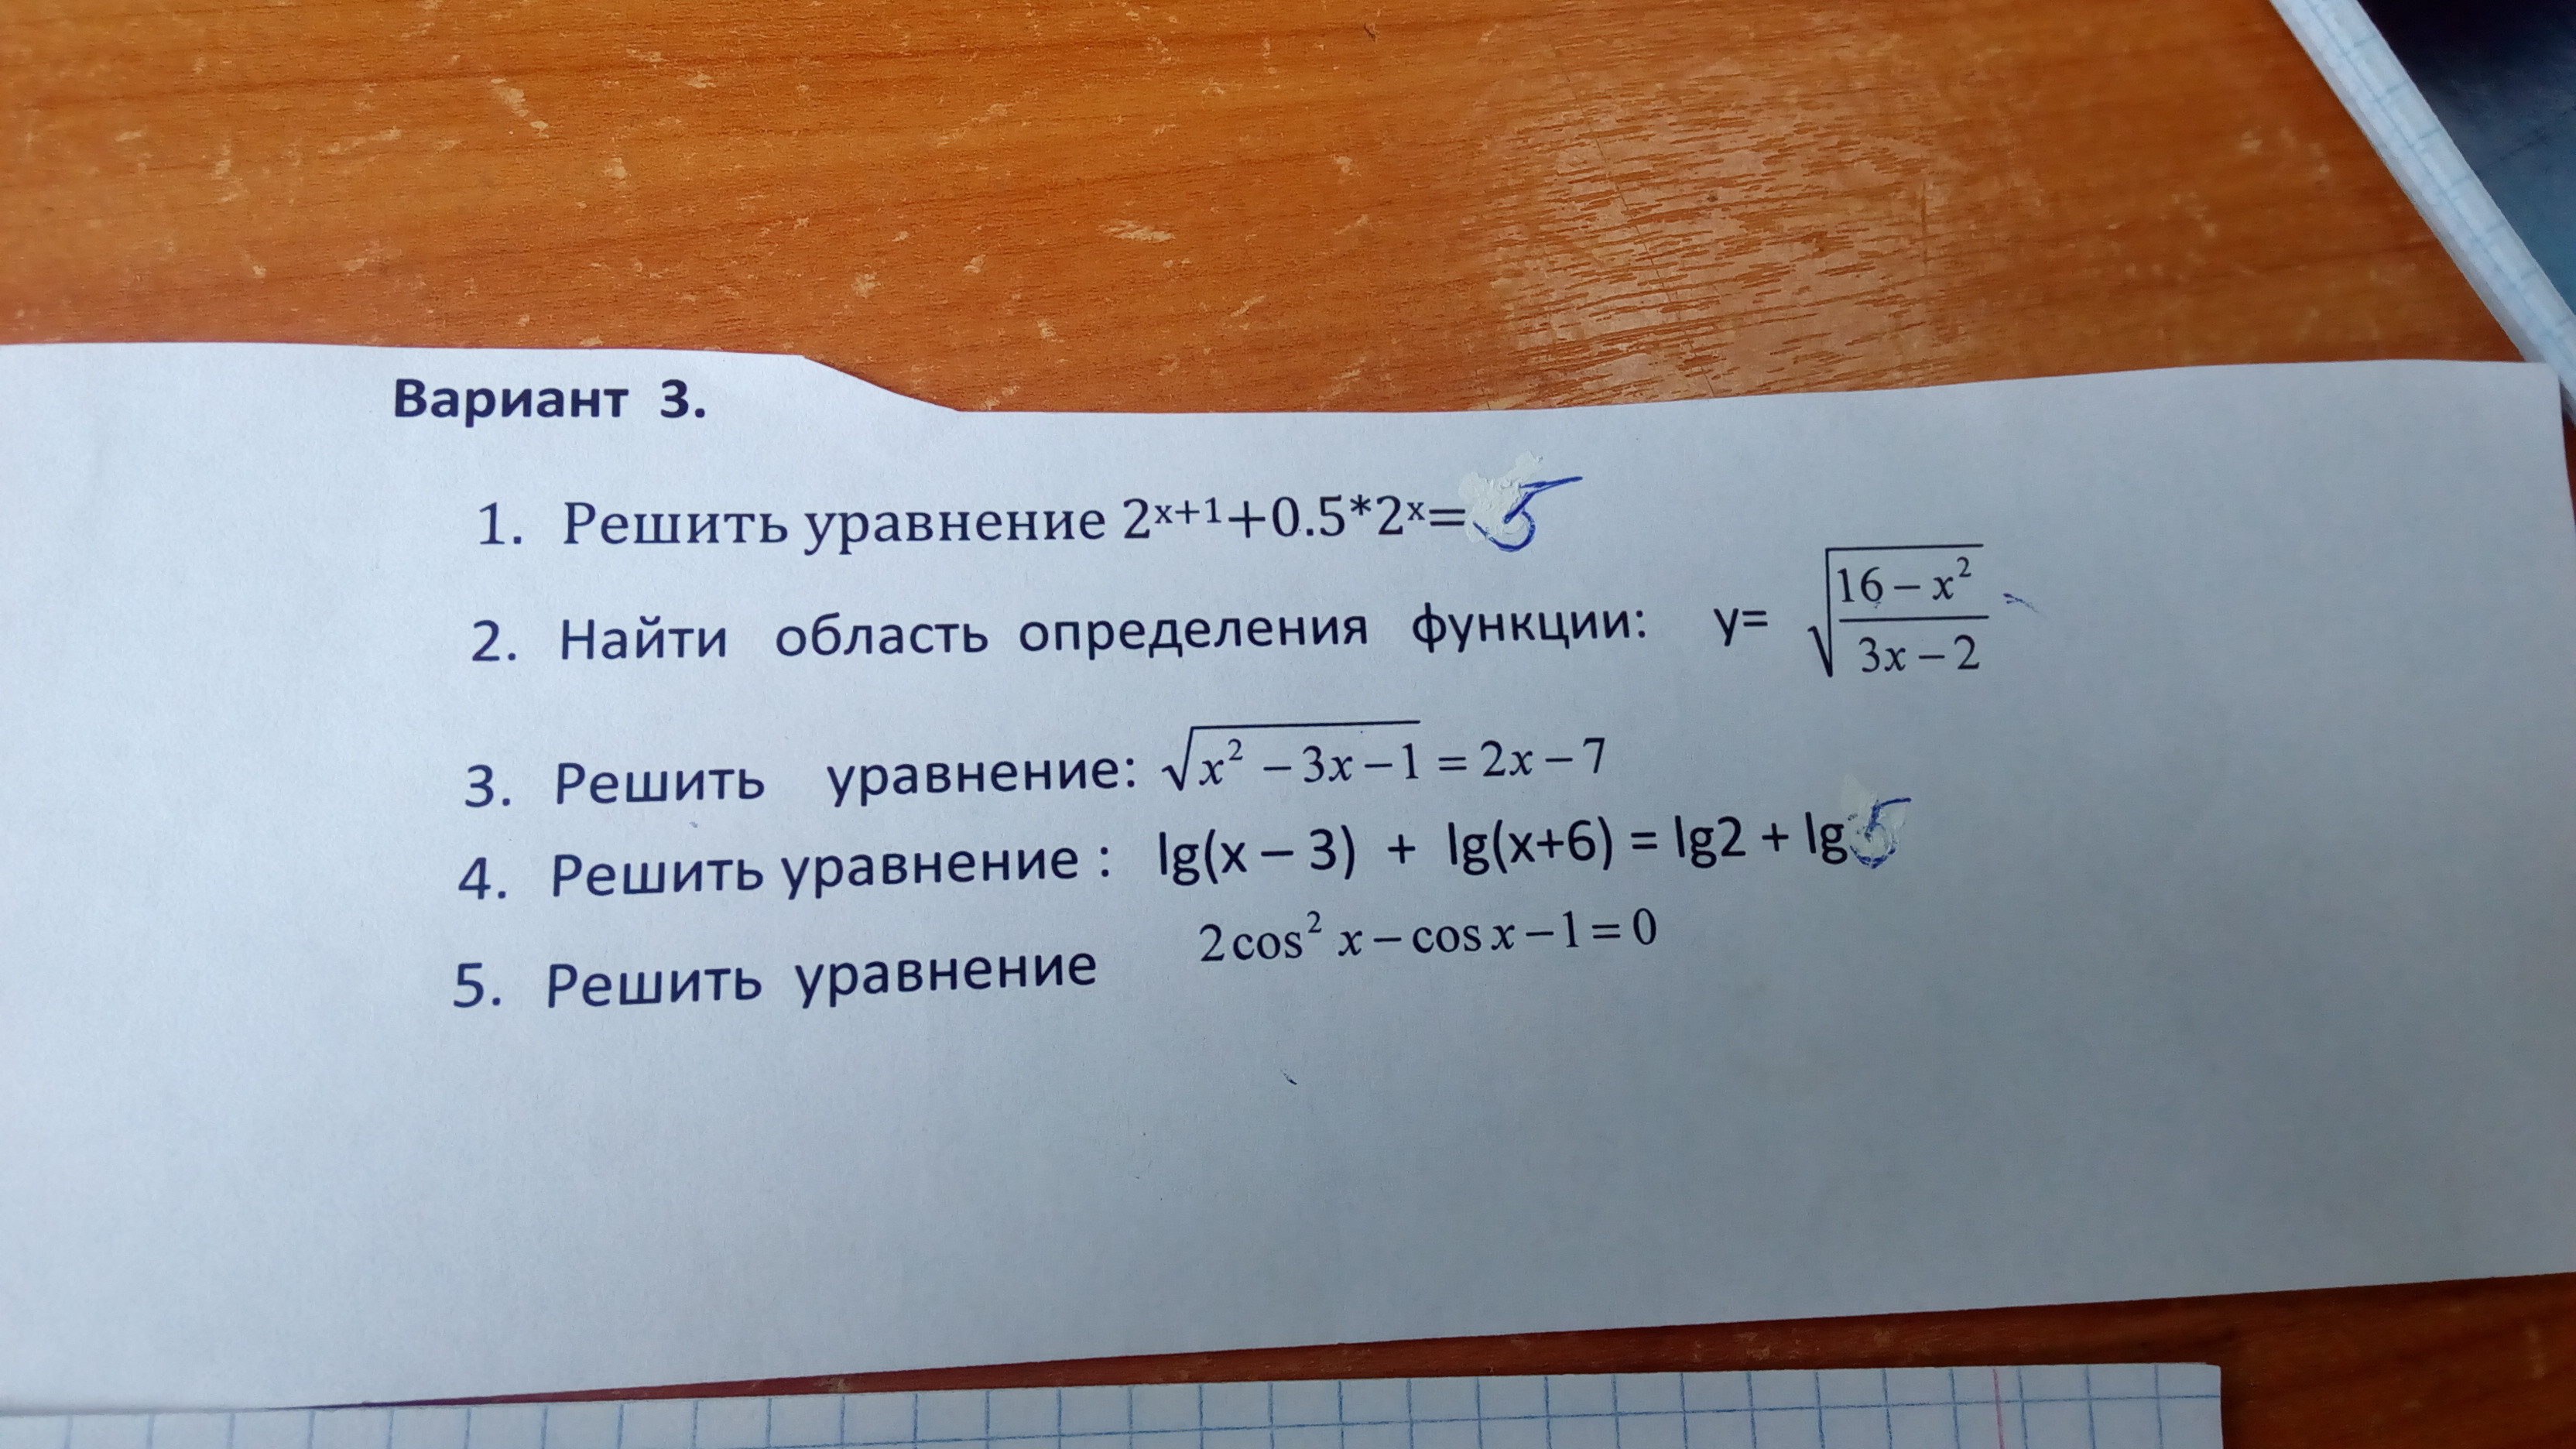 Вариант 3.
1. Решить уравнение 2ˣ⁺¹+0.5*2ˣ=5
2. Найти область определения функции: y= √((16 – x²)/(3x – 2))
3. Решить уравнение: √(x² – 3x – 1) = 2x – 7
4. Решить уравнение : lg(x – 3) + lg(x+6) = lg2 + lg5
5. Решить уравнение 2cos² x – cos x – 1 = 0